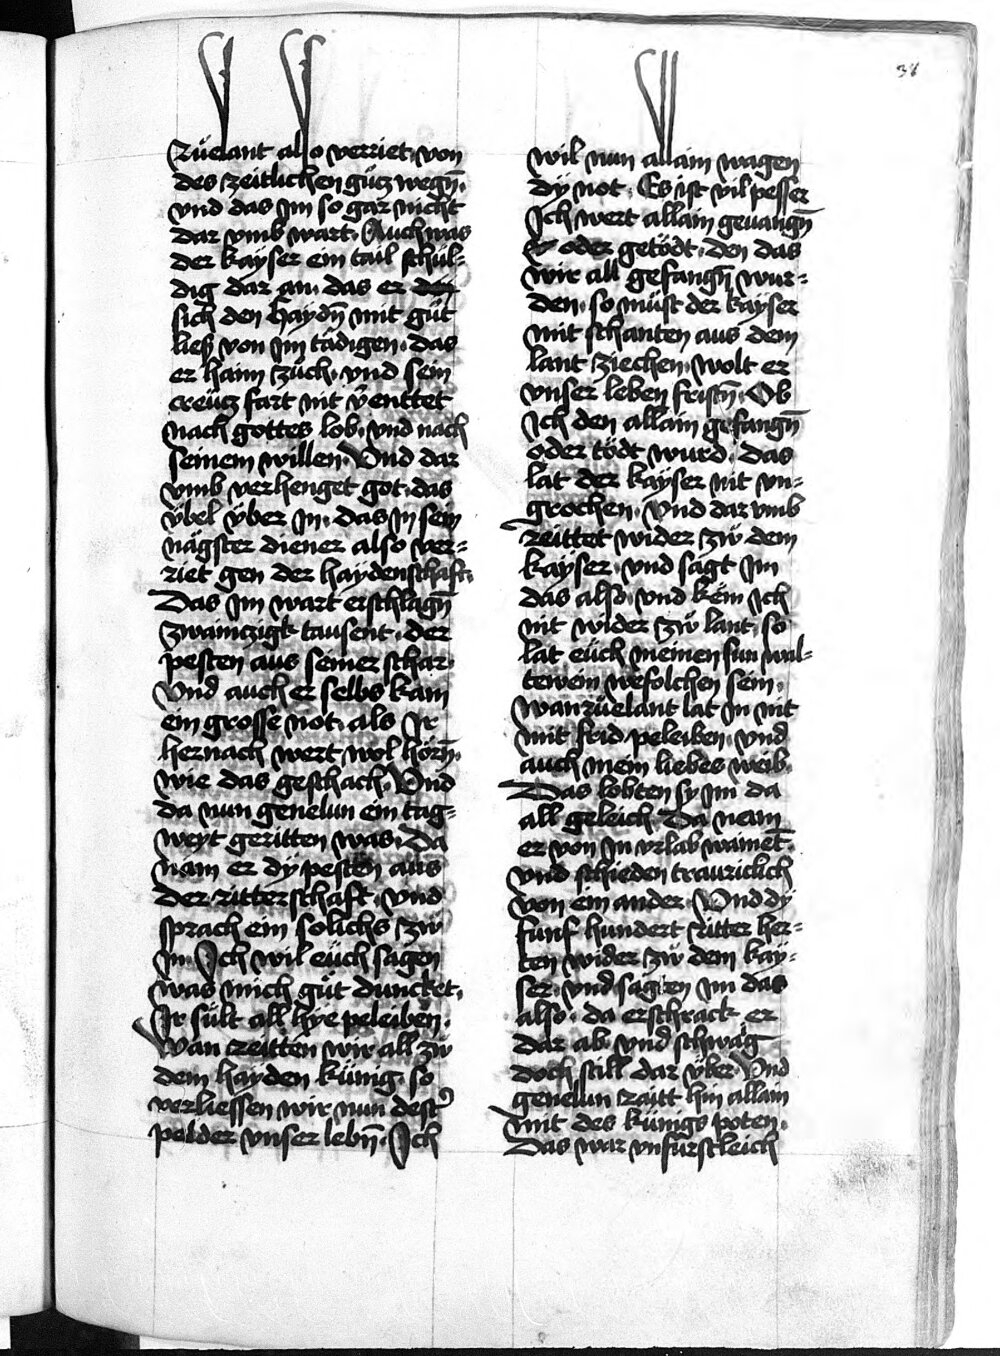 38
Rüelant also verriet · von
des zeitlichen gücz wegn̄ ·
vnd das Im so gar nicht
dar vmb wart · Auch was
der kayser ein tail schul-
dig dar an · das er
sich den haydn̄ mit güt
ließ von Im tädigen · das
er haim züch · vnd sein
creücz fart nit v̈enttet
nach gottes lob · vnd nach
seinem willen · Vnd dar
vmb verhenget got · das
v̈bel v̈ber In · das In sein
nägster diener also ver-
riet gen der haydenschaft ·
Das Im wart erschlagn̄
zwainczigk tausent · der
pesten aus seiner schar ·
Vnd auch er selbs kam
ein grosse not · als Ir
hernach wert wol hörn̄ ·
wie das geschach · Vnd
da nun genelun ein tag-
weyt geritten was · Da
nam er dy pesten aus
der ritterschaft · vnd
sprach ein solichs zw̋
In · Ich wil eüch sagen
was mich güt duncket ·
Ir sült all hye peleiben ·
Wan reitten wir all zw̋
dem hayden künig · so
verliessen wir nun dest
palder vnser lebn̄ · Ich
wil nun allain wagen
dy not · Es ist vil pesser
Ich wert allain geuangn̄
oder getödt · den das
wir all gefangn̄ wur-
den · so müst der kayser
mit schanten aus dem
lant ziechen · wolt er
vnser leben fristn̄ · Ob
Ich den allain gefangn̄
oder tödt wurd · Das
lat der kayser nit vn-
grochen · Vnd dar vmb
reittet wider zw̋ dem
kayser · vnd sagt Im
das also · vnd këm Ich
nit wider zw̋ lant · so
lat eüch meinen sun wal-
tewein wefolchen sein ·
wan rüelant lat In nit
mit frid peleiben · vnd
auch mein liebes weib ·
Das lobten sy Im da
all geleich · Da nem
er von In vrlab
vnd schieden trauriclich
von ein ander · Vnd dy
funf hundert ritter her-
ten wider zw̋ dem kay-
ser · vnd sagten Im das
also · da erschrack er
dar ab · vnd schwaig
doch still dar v̈ber · Vnd
genelun raitt hin allain
mit des künigs poten ·
Das war vnfürstleich